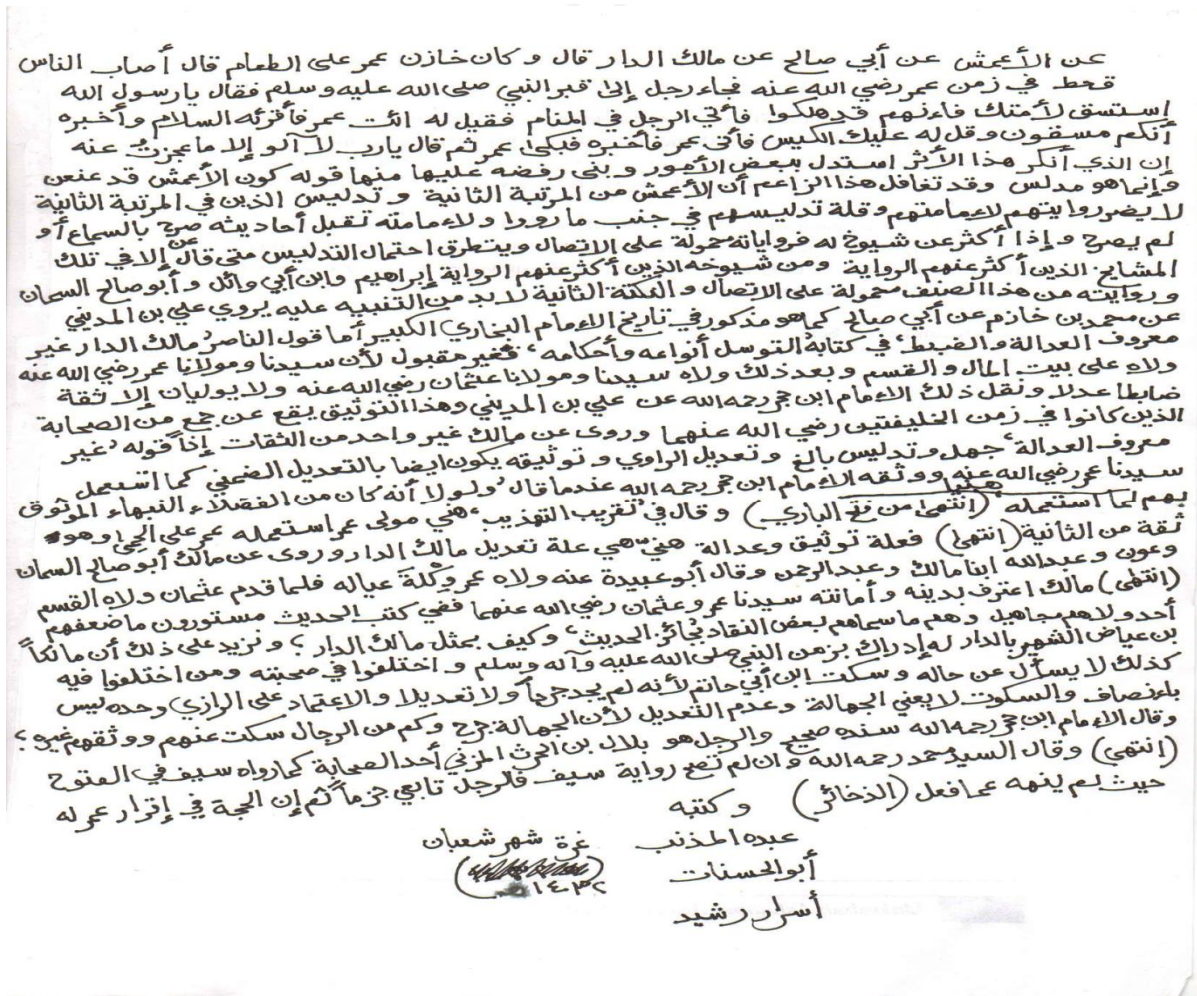 عن الأعمش عن أبي صالح عن مالك الدار قال و كان خازن عمر على الطعام قال أصاب الناس
قحط في زمن عمر رضي الله عنه فجاء رجل إلى قبر النبي صلى الله عليه وسلم فقال يا رسول الله
إستسق لأمتك فاءنهم قد هلكوا فأتى الرجل في المنام فقيل له ائت عمر فأقرئه السلام وأخبره
أنكم مسقون وقل له عليك الكيس فأتى عمر فأخبره فبكى عمر ثم قال يارب لا آلو إلا ما عجزت عنه
إن الذي أنكر هذا الأثر استدل ببعض الأمور و بنى رفضه عليها منها قوله كون الأعمش قد عنعن
وإنما هو مدلس وقد تغافل هذا الزاعم أن الأعمش من المرتبة الثانية و تدليس الذين في المرتبة الثانية
لا يضر روايتهم لاءمامتهم وقلة تدليسهم في جنب ما رووا ولاءمامته تقبل أحاديثه صرح بالسماع أو
لم يصرح وإذا أكثر عن شيوخ له فرواياته محمولة على الاتصال ويتطرق احتمال التدليس متى قال عن إلا في تلك
المشايخ الذين أكثر عنهم الرواية ومن شيوخه الذين أكثر عنهم الرواية إبراهيم وابن أبي وائل و أبو صالح السمان
و روايته من هذا الصنف محمولة على الاتصال و النكتة الثانية لا بد من التنبيه عليه يروي علي بن المديني
عن محمد بن خازم عن أبي صالح كما هو مذكور في تاريخ الاءمام البخاري الكبير أما قول الناصر مالك الدار غير
معروف العدالة و الضبط، في كتابه التوسل أنواعه وأحكامه، فغير مقبول لأن سيدنا ومولانا عمر رضي الله عنه
ولاه على بيت المال و القسم و بعد ذلك ولاه سيدنا ومولانا عثمان رضي الله عنه ولا يوليان إلا ثقة
ضابطا عدلا ونقل ذلك الاءمام ابن حجر رحمه الله عن علي بن المديني وهذا التوثيق يقع عن جمع من الصحابة
الذين كانوا في زمن الخليفتين رضي الله عنهما وروى عن مالك غير واحد من الثقات إذاً قوله ‘غير
معروف العدالة، جهل وتدليس بالغ و تعديل الراوي و توثيقه يكون ايضا بالتعديل الضمني كما استعمل
سيدنا عمر رضي الله عنه هنيا ووثقه الاءمام ابن حجر رحمه الله عندما قال ‘ولو لا أنه كان من الفضلاء النبهاء الموثوق
بهم لما استعمله (انتهى من فتح الباري) وقال في ‘تقريب التهذيب، هني مولى عمر استعمله عمر على الحمى وهو
ثقة من الثانية (انتهى) فعلة توثيق وعدالة هني هي علة تعديل مالك الدار وروى عن مالك أبو صالح السمان
وعون وعبد الله ابنا مالك وعبد الرحمن وقال أبو عبيدة عنه ولاه عمر وكلة عياله فلما قدم عثمان ولاه القسم
(انتهى) مالك اعترف بدينه و أمانته سيدنا عمر وعثمان رضي الله عنهما ففي كتب الحديث مستورون ما ضعفهم
أحد ولا هم مجاهيل وهم ما سماهم بعض النقاد بجائز الحديث، وكيف بمثل مالك الدار؟ و نزيد على ذلك أن مالكاً
بن عياض الشهير بالدار له إدراك بزمن النبي صلى الله عليه وآله وسلم و اختلفوا في صحبته ومن اختلفوا فيه
كذلك لا يسأل عن حاله و سكت ابن أبي حاتم لأنه لم يجد جرحاً ولا تعديلا والاعتماد على الرازي وحده ليس
باءنصاف والسكوت لا يعني الجهالة وعدم التعديل لأن الجهالة جرح وكم من الرجال سكت عنهم ووثقهم غيره؟
وقال الاءمام ابن حجر رحمه الله سنده صحيح والرجل هو بلال بن الحرث المزني أحد الصحابة كما رواه سيف في الفتوح
(انتهى) وقال السيد محمد رحمه الله وان لم تصح رواية سيف فالرجل تابعي جزماً ثم إن الحجة في إقرار عمر له
حيث لم ينهه عما فعل (الذخائر) و كتبه
عبده المذنب غرة شهر شعبان
أبو الحسنات
١٤٣٢
أسرار رشيد